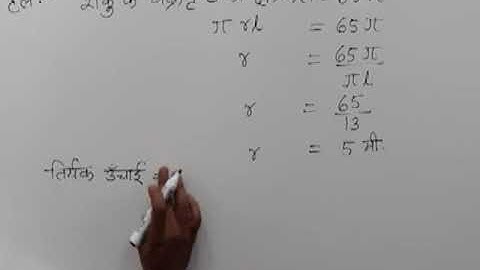 हल: शंकु के
π rl = 65 π
r = 65 π / π l
r = 65 / 13
r = 5 मी.
तिर्यक ऊँचाई =